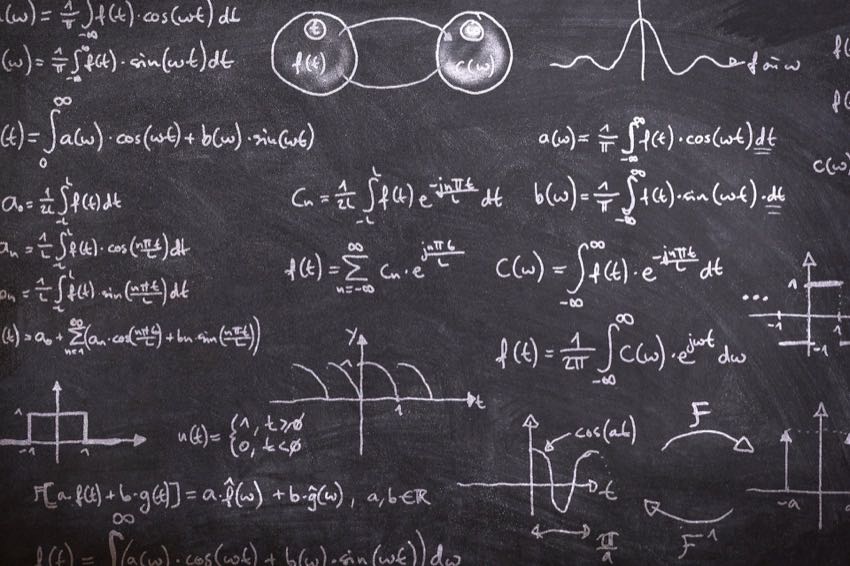 (ω) = 1/π ∫_{-∞} f(t)·cos(ωt) dt
(ω) = 1/π ∫_{-∞}^{∞} f(t)·sin(ωt) dt
t
f(t)
ω
c(ω)
f sin ω
f(
f(
(t) = ∫_0^∞ a(ω)·cos(ωt) + b(ω)·sin(ωt)
a(ω) = 1/π ∫_{-∞}^{∞} f(t)·cos(ωt) dt
c(ω)
a₀ = 1/2L ∫_{-L}^{L} f(t) dt
Cn = 1/2L ∫_{-L}^{L} f(t) e^{-jnπt/L} dt
b(ω) = 1/π ∫_{-∞}^{∞} f(t)·sin(ωt)·dt
an = 1/L ∫_{-L}^{L} f(t)·cos(nπt/L) dt
f(t) = ∑_{n=-∞}^{∞} Cn·e^{jnπt/L}
C(ω) = ∫_{-∞}^{∞} f(t)·e^{-jnπt/L} dt
bn = 1/L ∫_{-L}^{L} f(t)·sin(nπt/L) dt
...
1
-1
1
-1
(t) = a₀ + ∑_{n=1}^{∞} (an·cos(nπt/L) + bn·sin(nπt/L))
y
1
1
t
f(t) = 1/2π ∫_{-∞}^{∞} C(ω)·e^{jωt} dω
1
-1
1
u(t) = {1, t≥0
0, t<0
cos(at)
t
π/a
F
F⁻¹
-a
F[a·f(t)+b·g(t)] = a·f̂(ω) + b·ĝ(ω), a,b∈ℝ
f(t) = ∫^∞ (a(ω)·cos(ωt) + b(ω)·sin(ωt)) dω